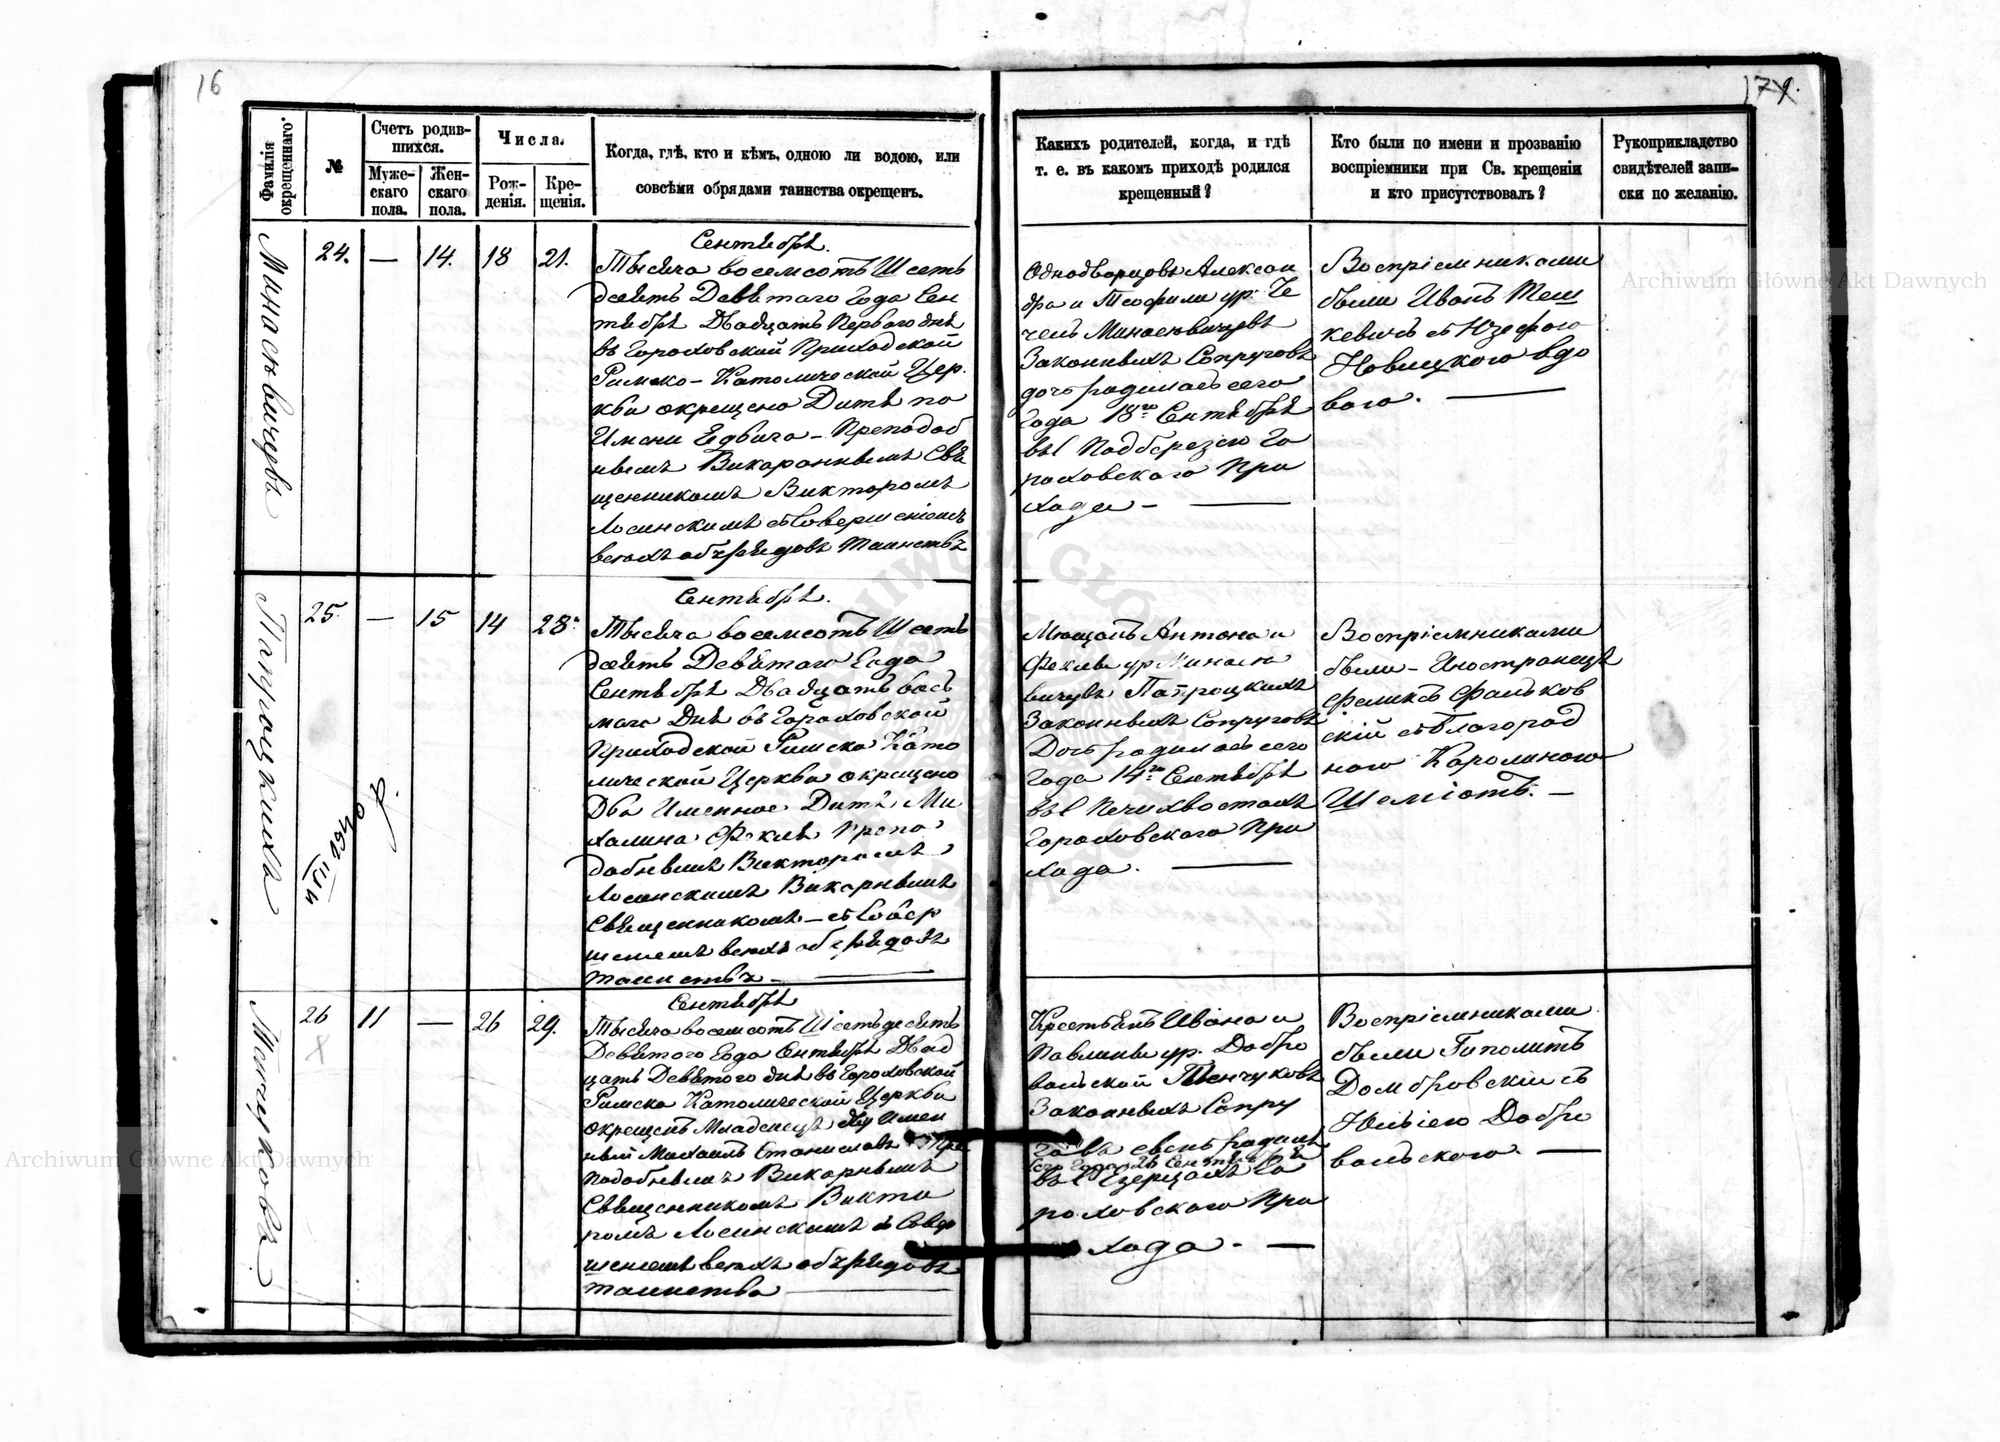 16
17
Фамилія окрещеннаго.
№
Счетъ родив-
шихся.
Муже-
скаго
пола.
Жен-
скаго
пола.
Числа.
Рож-
денія.
Кре-
щенія.
Когда, гдѣ, кто и кѣмъ, одною ли водою, или
совсѣми обрядами таинства окрещенъ.
Какихъ родителей, когда, и гдѣ
т. е. въ какомъ приходѣ родился
крещенный?
Кто были по имени и прозванію
воспріемники при Св. крещеніи
и кто присутствовалъ?
Рукоприкладство
свидѣтелей запи-
ски по желанію.
24. — 14. 18 21.
Сентября.
Тысяча восемсотъ Шесть
десятъ Девятаго Года Сен
тября Двадцать Перваго дня
въ Гороховской Приходской
Римско-Католической Цер.
кви окрещено Дитя по
Имени Ядвига – Преподоб
нымъ Викаріальнымъ Свя
щенникомъ Викторомъ
Лосинскимъ съ Совершеніемъ
всѣхъ обърядовъ Таинствъ
Однодворцовъ Алексан
дра и Теофили ур. Че
Законныхъ Супруговъ
дочь родилась сего
Года 18го Сентября
въ Подберезю Го
роховского При
хода —
Воспріемниками
были Иванъ Теш
кевичъ съ Юзефою
Новицкого вдо
вою. —
25. — 15 14 28.
Сентября.
Тысяча восемсотъ Шесть
десятъ Девятого Года
Сентября Двадцать вось
мого Дня въ Гороховской
Приходской Римско Като
лической Церкви окрещено
Два Именное Дитя Ми
халина Фекля Препо
добнымъ Викторомъ
Лосинскимъ Викарнымъ
Священникомъ – съ Совер
шеніемъ всѣхъ обърядовъ
таинствъ —
Мещанъ Антона и
Феклы ур Минасе
вичувъ Папроцкихъ
Законныхъ Супруговъ
Дочь родилась сего
Года 14го Сентября
въ Печихвостахъ
Гороховского При
хода. —
Воспріемниками
были – Иностранецъ
Феликсъ Фальков
скій съ Благород
ною Каролиною
Шеліотъ. —
26 11 — 26 29.
Сентября
Тысяча восемсотъ Шестьдесятъ
Девятого Года Сентября Двад
цать Девятого дня въ Гороховской
Римско Католической Церкви
окрещенъ Младенецъ Двуимен
ный Михаилъ Станиславъ Пре
подобнымъ Викарнымъ
Священникомъ Викто
ромъ Лосинскимъ съ Совер
шеніемъ всѣхъ обърядовъ
таинства —
Крестьянъ Ивана и
Павлины ур. Добро
вольской
Законныхъ Супру
говъ сынъ родился
роховского При
хода. —
Воспріемниками
были Гиполитъ
Домбровскій съ
Юлією Добро
вольского. —
Папроцкихъ
Archiwum Główne Akt Dawnych
Archiwum Główne Akt Dawnych